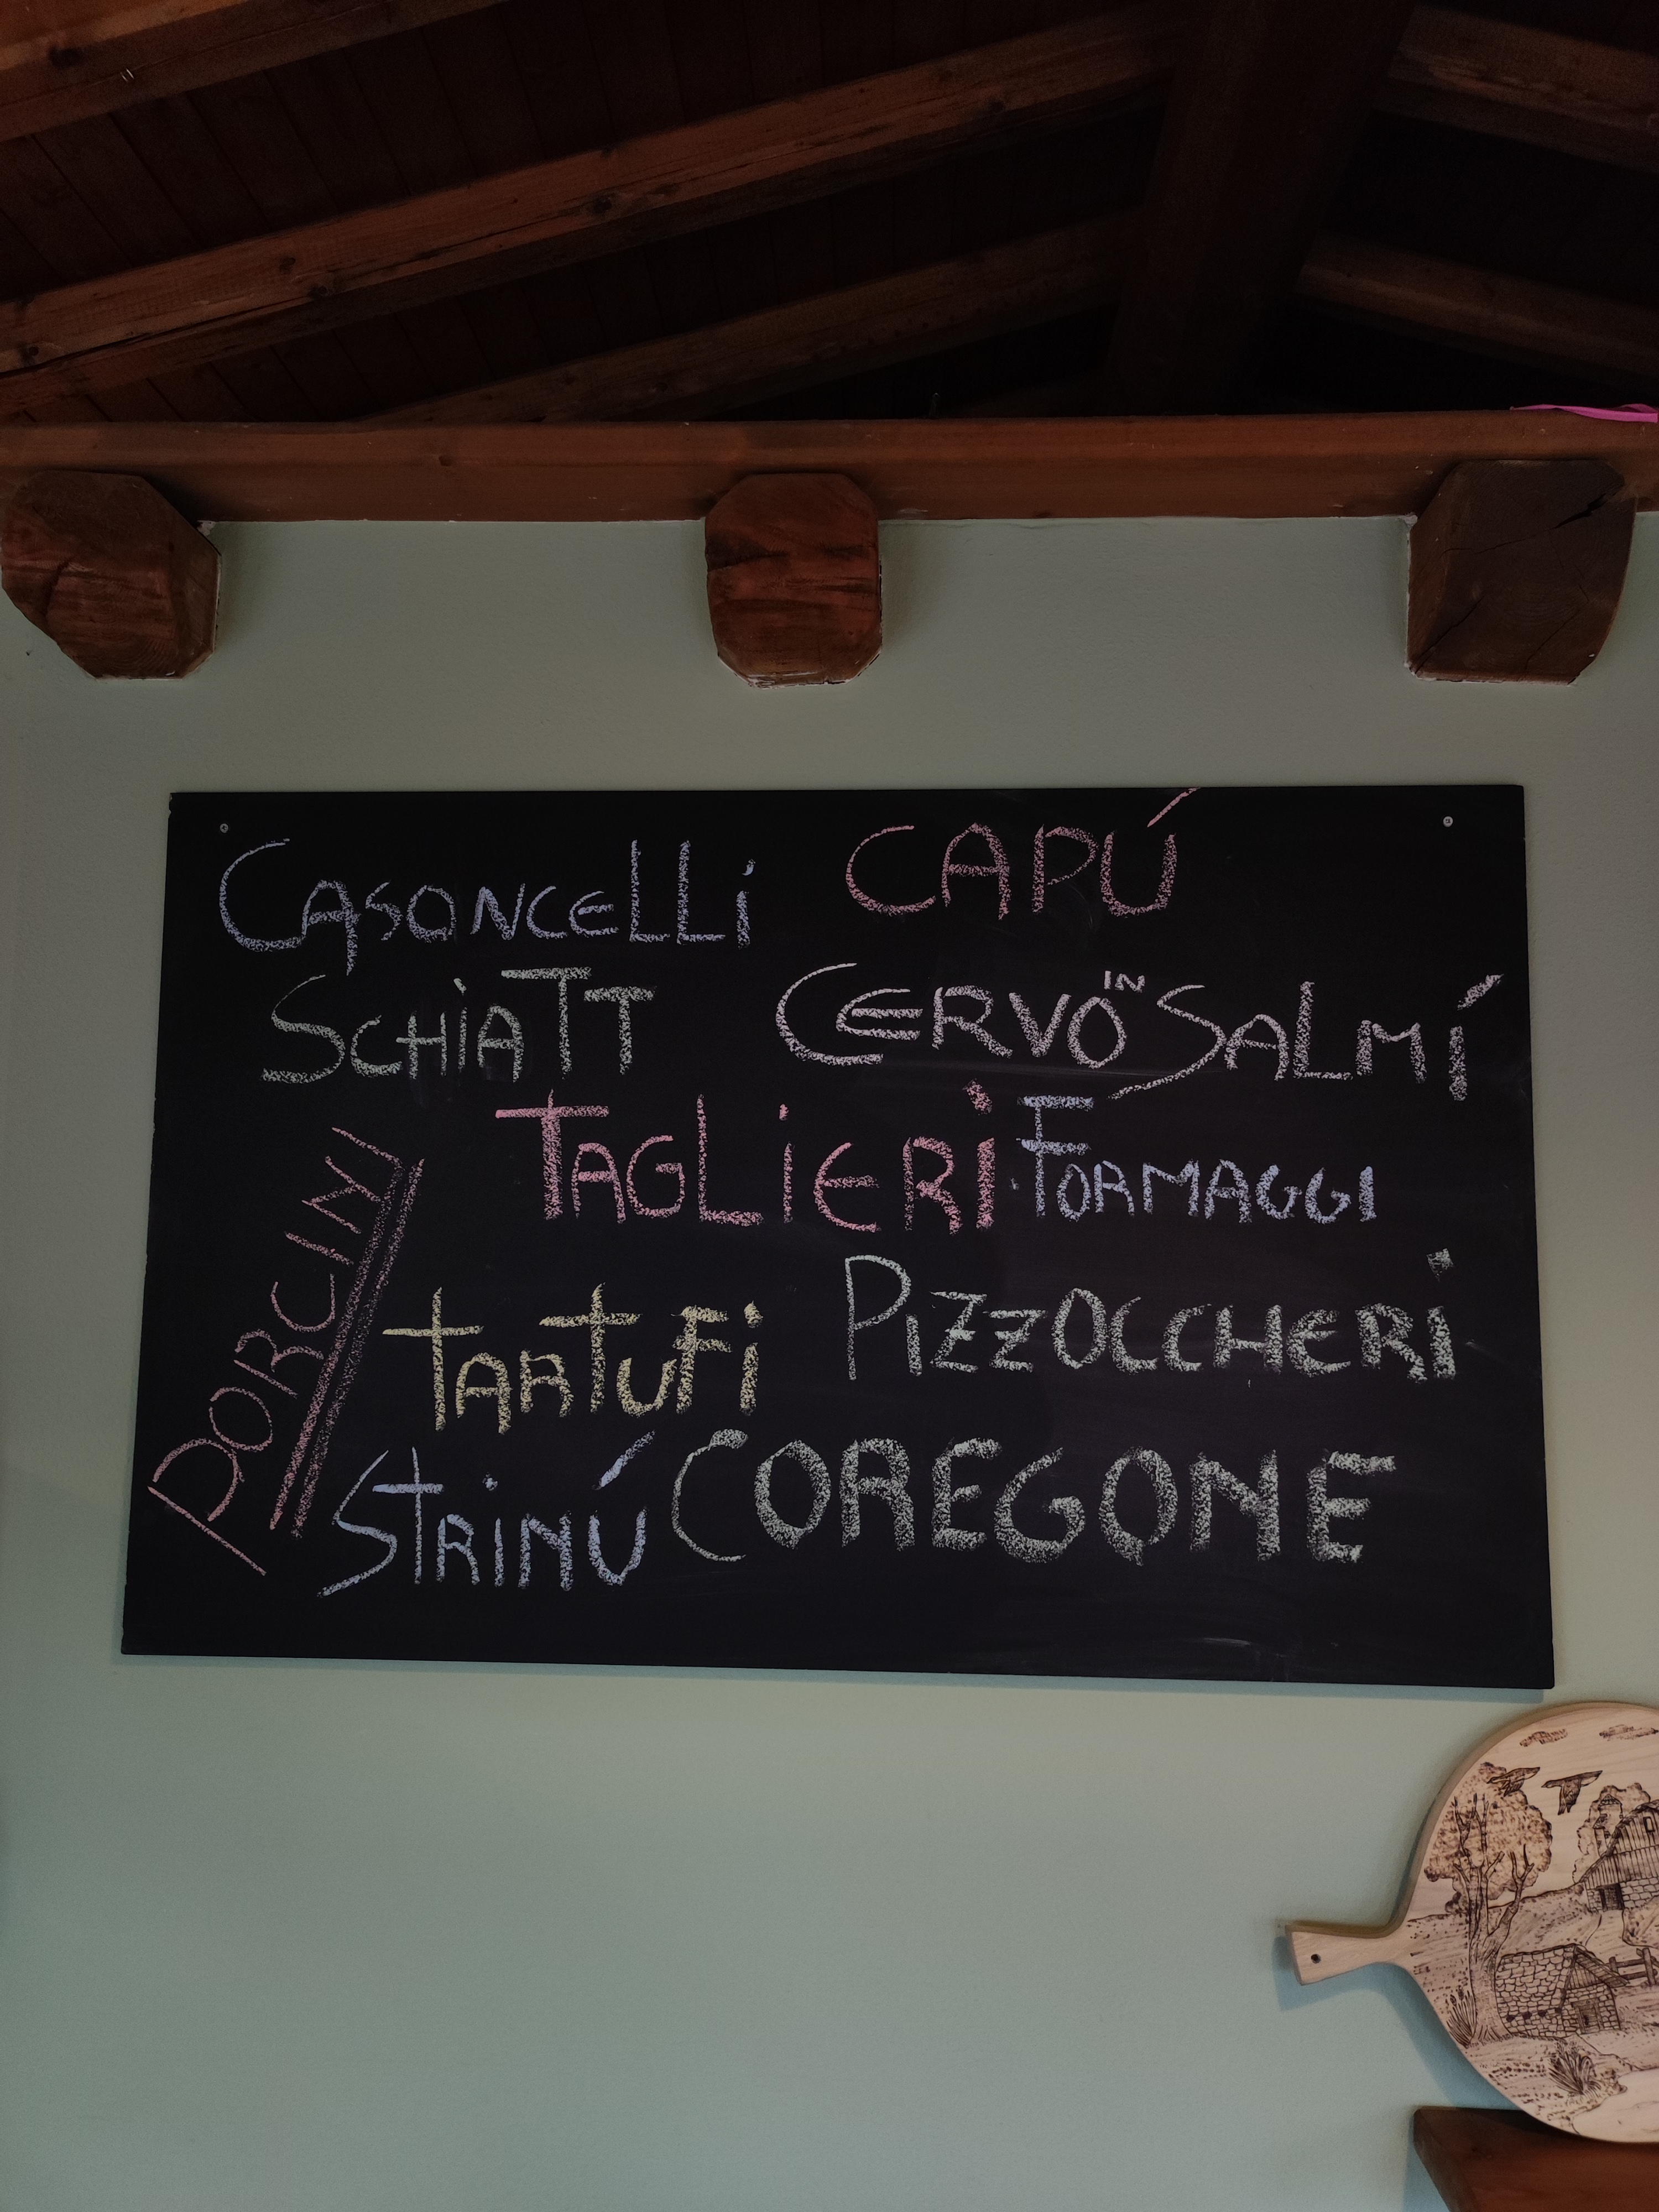 CASONCELLi CAPÚ
SCHiATT CERVO IN SALMÍ
TAGLiERi FORMAGGI
PORCINI
TARTUFi PiZZOCCHERi
STRiNÚ COREGONE